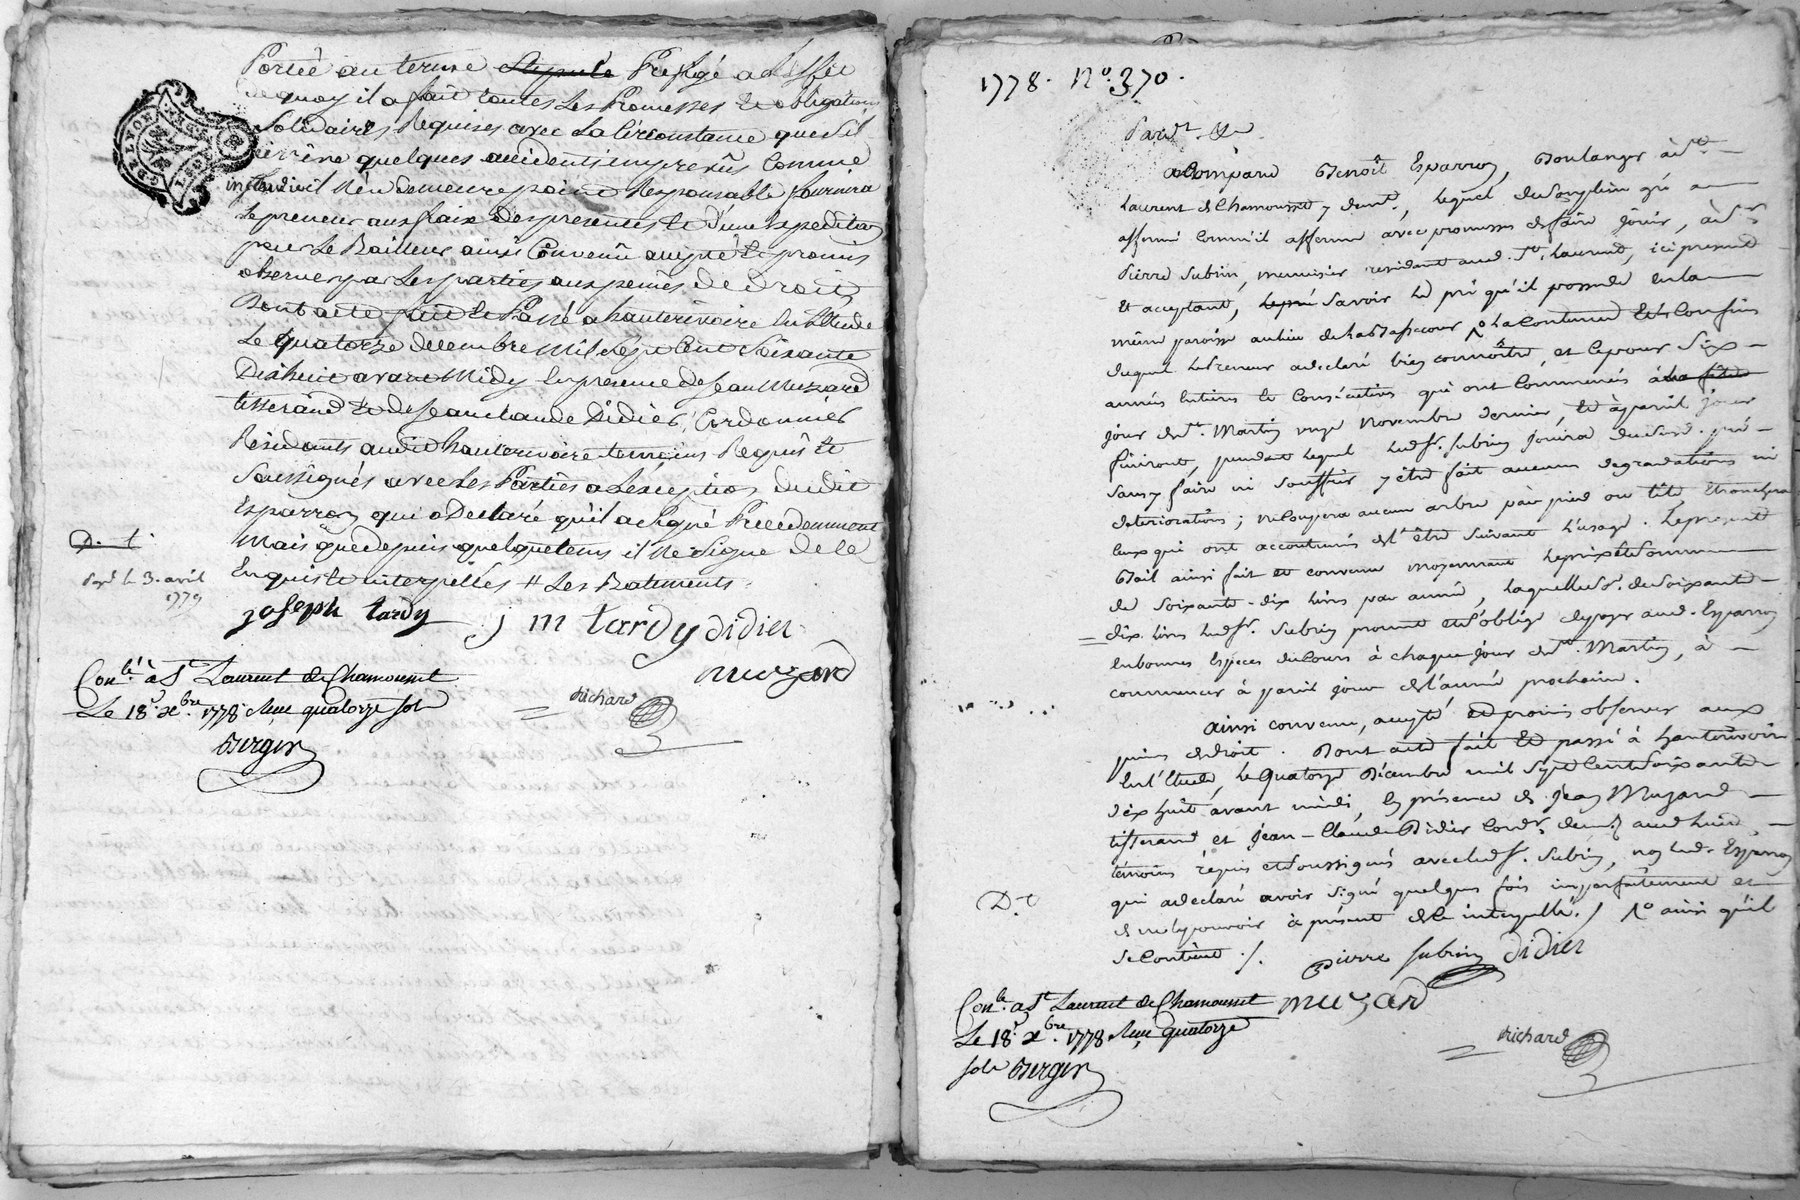 Portée au terme stipulé Prefigé a l'effet
de quoy il a fait toutes Les Promesses et obligations
Solidaires Requises avec La Circonstance que S'il
arrive quelques accidents imprevûs Comme
incendie il N'en demeurera point Responsable fournira
Le preneur aux fraix des presentes et d'une Expedition
pour Le Bailleur ainsi Convenû accepté et promis
observer par Les parties aux peines de droit,
Dont acte fait et Passé a hauterivoire En l'Etude
Le quatorze decembre Mil Sept Cent Soixante
Dixhuit avant Midy En presence de Jean Muzard
tisserand et de Jean Claude Didier, Cordonnier
Résidents audit hauterivoire temoins Requis et
Soussignés avec Les Parties a L'exception dudit
Esparron qui a Declaré qu'il a signé Precedemment
Mais que depuis quelque tems il Ne Signe de Ce
Enquis et interpellés # Les Batiments
D. t.
le 3. avril
1779
joseph tardy j m tardy didier
muzard
Con.lé à St. Laurent de Chamousset
Le 18e. xbre. 1778 Reçu quatorze sols
Berger
Richard
1778. No. 370.
Pardt. &c
a Comparu Benoît Esparron, Boulanger à St.
Laurent de Chamousset y demt., Lequel de Son plein gré a
affermé Comm'il afferme avec promesses de faire Jouir, à Sr.
Pierre Subrin, menuisier residant aud. St. Laurent, ici present
et acceptant, Savoir Le pré qu'il possede En La
même paroisse au Lieu de La La Contenue Et Confins
duquel Le Preneur a declaré bien connoître, et Ce pour Six
années Entieres et Consécutives qui ont Commencés à la fête
jour de St. Martin onze Novembre dernier, et à pareil jour
finiront, pendant Lequel Led. Sr. Subrin Jouira dudit pré
Sans y faire ni Souffrir y être fait aucunes degradations ni
deteriorations; ne Coupera aucun arbre par pied ou tête, Etronchera
Ceux qui ont accoutumés de L'être Suivant L'usage. Le present
Bail ainsi fait et convenu moyennant Le prix et Somme
de Soixante-dix Livres par année, Laquelle Se. de Soixante
dix Livres Led. Sr. Subrin promet et S'oblige de payer aud. Esparron
En bonnes Especes du Cours à chaque jour de St. Martin, à
commencer à pareil jour de L'année prochaine.
Ainsi convenu, accepté et promis observer aux
peines de droit. Dont acte fait et passé à hauterivoire
En L'Etude, Le Quatorze Décembre mil Sept Cent Soixante
dix huit avant midi, En présence de Jean Muzard
tisserand et Jean-Claude Didier Cordr. demt. aud. hauterive.
témoins réquis et Soussignés avec led. Sr. Subrin, non led. Esparron
qui a declaré avoir Signé quelques fois imparfaitement et
de ne Le pouvoir à présent de Ce interpellé./ ainsi qu'il
Se Contient ./.
D. t
pierre subrin didier
Con.lé a St Laurent de Chamousset muzard
Le 18e. xbre. 1778 Reçu quatorze
sols Berger
Richard